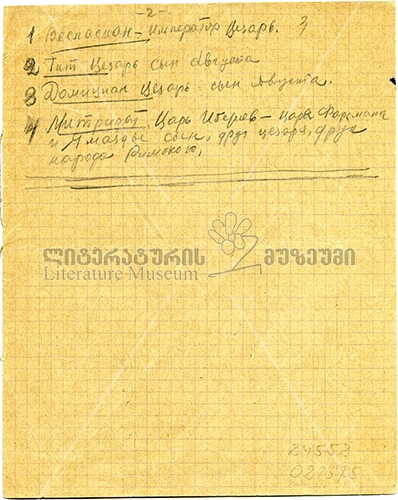 -2-
1 Веспасиан - Император Цезарь. 3
2 Тит Цезарь сын Августа
3 Домициан Цезарь сын Августа.
4 Митридат Царь Иберов - царя Фарсмана
и Ямазды сын, друг цезаря, друг
народа Римского,
ლიტერატურის მუზეუმი
Literature Museum
24553
021375